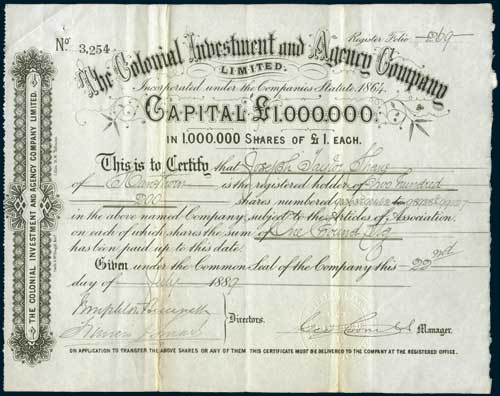 No 3,254
Register Folio 269
The Colonial Investment and Agency Company
LIMITED.
Incorporated under the Companies Statute 1864.
CAPITAL £1,000,000.
IN 1,000,000 SHARES OF £1. EACH.
This is to Certify that Joseph Taylor
of is the registered holder of Two hundred
200 shares numbered to
in the above named Company, subject to the Articles of Association.
on each of which shares the sum of One Pound Stg
has been paid up to this date.
Given under the Common Seal of the Company this 23rd
day of July 1889
Directors.
Manager.
ON APPLICATION TO TRANSFER THE ABOVE SHARES OR ANY OF THEM THIS CERTIFICATE MUST BE DELIVERED TO THE COMPANY AT THE REGISTERED OFFICE.
THE COLONIAL INVESTMENT AND AGENCY COMPANY LIMITED.